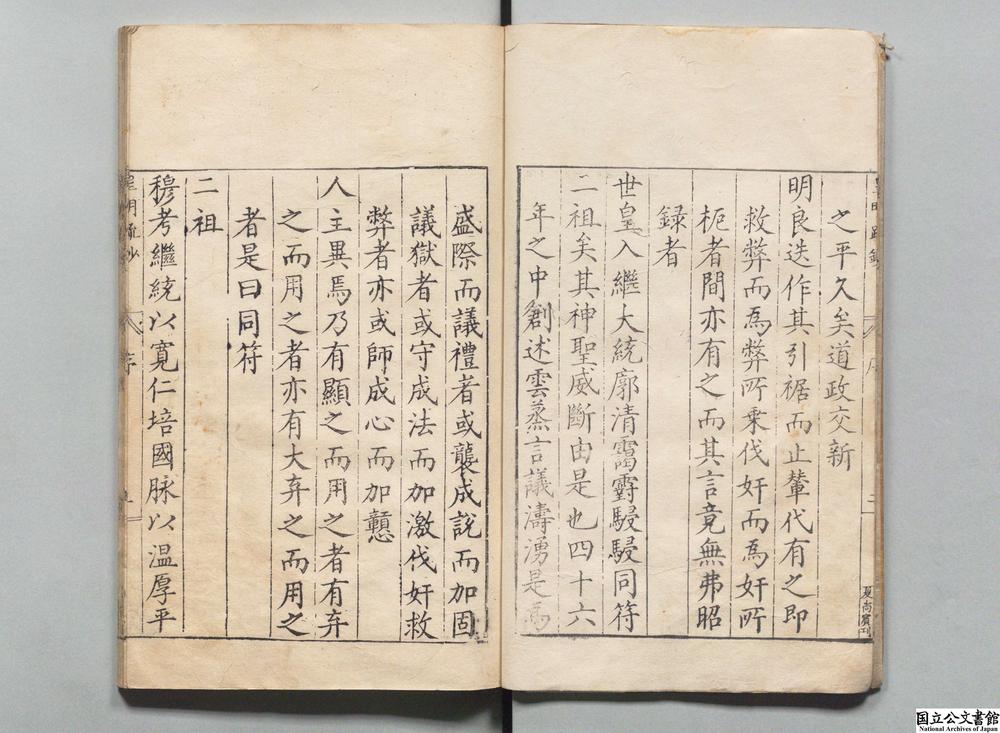 之平久矣道政交新
明良迭作其引裾而止輦代有之即
救弊而爲弊所乗伐奸而爲奸所
軛者間亦有之而其言竟無弗昭
録者
世皇入繼大統廓清霱霨駸駸同符
二祖矣其神聖威斷由是也四十六
年之中創述雲蒸言議濤湧是爲
夏尚賓刊
盛際而議禮者或襲成說而加固
議獄者或守成法而加激伐奸救
弊者亦或師成心而加戇
人主異焉乃有顯之而用之者有弃
之而用之者亦有大弃之而用之
者是曰同符
二祖
穆考繼統以寛仁培國脉以温厚平
皇明疏鈔
序
国立公文書館
National Archives of Japan